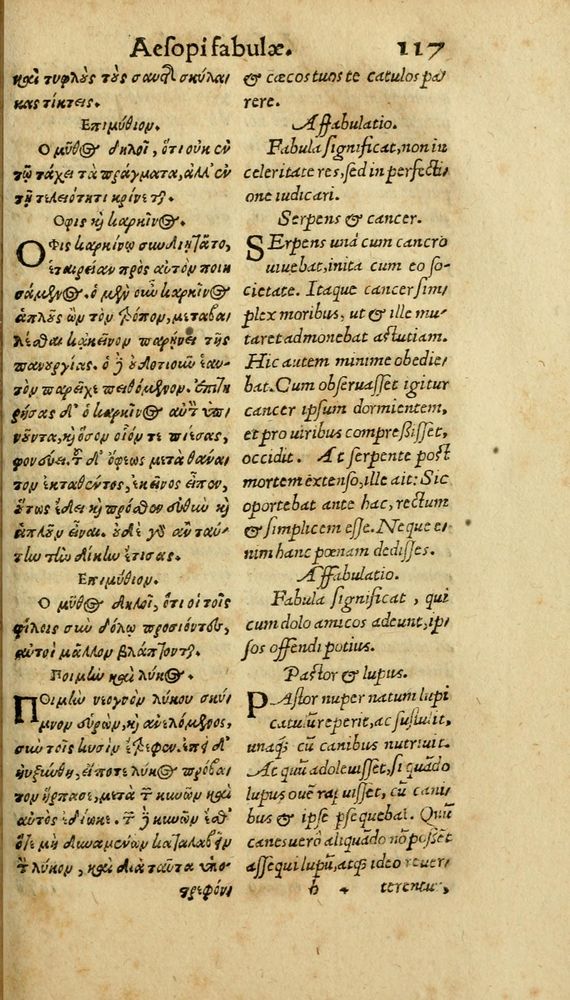 Aesopi fabulæ. 117
καὶ τυφλοὺς τοὺς σαυτῆς σκύλα/
κας τίκτεις.
Επιμύθιον.
Ο μῦθος δηλοῖ, ὅτι οὐκ ἐν
τῷ τάχει τὰ πράγματα, ἀλλ' ἐν
τῇ τελειότητι κρίνεται.
Οφις καὶ καρκῖνος.
ΟΦις καρκίνῳ συνδιῃτᾶτο,
ἑταιρείαν πρὸς αὐτὸν ποιη
σάμενος. ὁ μὲν οὖν καρκῖνος
ἁπλοῦς ὢν τὸν τρόπον, μεταβα/
λέσθαι κἀκεῖνον παρῄνει τῆς
πανουργίας. ὁ δὲ οὐδοτιοῦν ἑαυ/
τὸν παρεῖχε πειθόμενον. ἐπιτη
ρήσας δ' ὁ καρκῖνος αὐτὸν ὑπ/
νοῦντα, καὶ ὅσον οἷόν τε πιέσας,
φονεύει. τοῦ δ' ὄφεως μετὰ θάνα/
τον ἐκταθέντος, ἐκεῖνος εἶπεν,
οὕτως ἔδει καὶ πρόσθεν εὐθὺν καὶ
ἁπλοῦν εἶναι. οὐδὲ γὰρ ἂν ταύ/
την τὴν δίκην ἔτισας.
Επιμύθιον.
Ο μῦθος δηλοῖ, ὅτι οἱ τοῖς
φίλοις σὺν δόλῳ προσιόντες,
αὐτοὶ μᾶλλον βλάπτονται.
Ποιμὴν καὶ λύκος.
ΠΟιμὴν νεογνὸν λύκου σκύ/
μνον εὑρὼν, καὶ ἀνελόμενος,
σὺν τοῖς κυσὶν ἔτρεφεν. ἐπεὶ δ'
ηὐξύνθη, εἴ ποτε λύκος πρόβα/
τον ἥρπασε, μετὰ τῶν κυνῶν καὶ
αὐτὸς ἐδίωκε. τῶν δὲ κυνῶν ἔσθ'
ὅτε μὴ δυναμένων καταλαβεῖν
τὸν λύκον, καὶ διὰ ταῦτα ὑπο/
στρεφόν/
& cæcos tuos te catulos pa/
rere.
Affabulatio.
Fabula significat, non in
celeritate res, sed in perfecti/
one iudicari.
Serpens & cancer.
SErpens unà cum cancro
uiuebat, inita cum eo so-
cietate. Itaque cancer sim/
plex moribus, ut & ille mu/
taret admonebat astutiam.
Hic autem minime obedie/
bat. Cum obseruasset igitur
cancer ipsum dormientem,
et pro uiribus compressisset,
occidit. At serpente post
mortem extenso, ille ait: Sic
oportebat ante hac, rectum
& simplicem esse. Neque e/
nim hanc pœnam dedisses.
Affabulatio.
Fabula significat, qui
cum dolo amicos adeunt, ip/
sos offendi potius.
Pastor & lupus.
PAstor nuper natum lupi
catulũ reperit, ac sustulit,
unaq́; cũ canibus nutriuit.
At quũ adoleuisset, si quãdo
lupus ouẽ rapuisset, cũ cani/
bus & ipse psequebat. Quũ
canes uerò aliquãdo nõ posset
assequi lupũ, atq́; ideo reuer/
h 4 terentur,